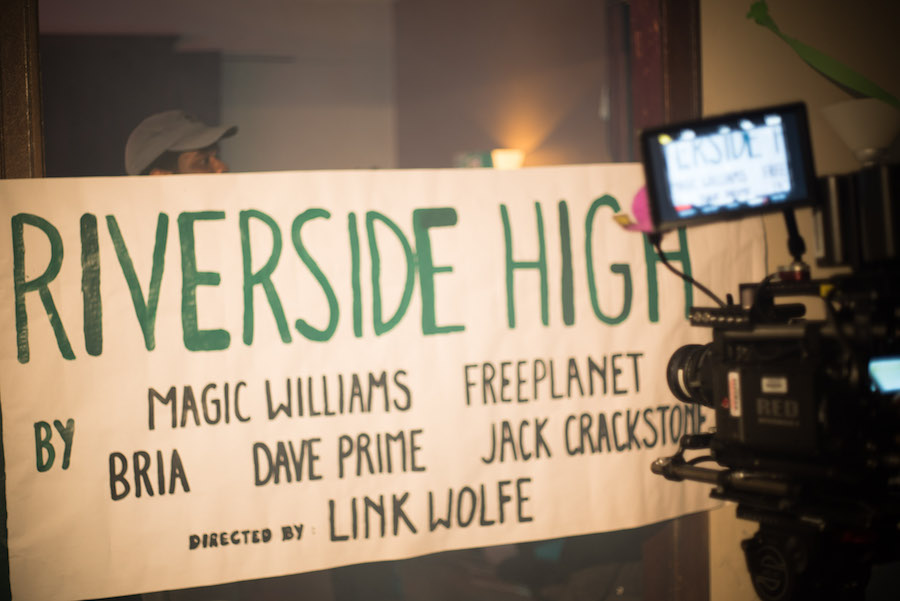 RIVERSIDE HIGH
MAGIC WILLIAMS FREEPLANET
BY BRIA DAVE PRIME JACK CRACKSTONE
DIRECTED BY LINK WOLFE
ERSIDE
MAGIC WILLIAMS FREE
DAVE PRIME
RED